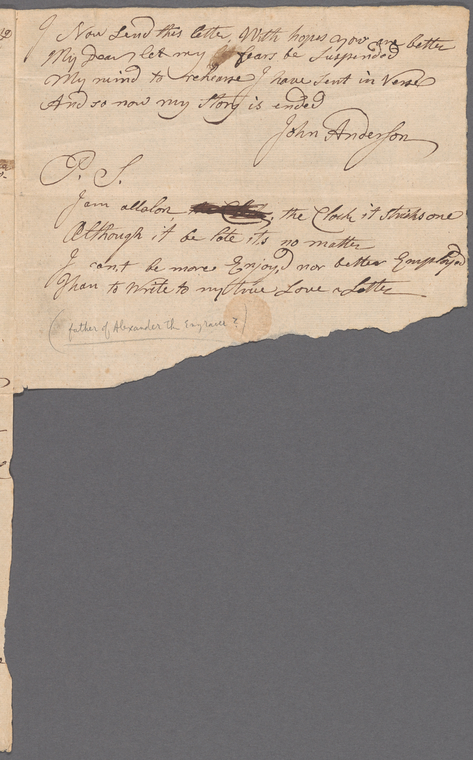 I Now Send this letter, With hopes you are better
My Dear let my fears be Suspended
My mind to rehearse I have Sent in Verse
And so now my Story is ended
John Anderson
P. S.
I am allalon, the Clock it striks one
Although it be late its no matter
I cant be more Enjoy,d nor better Employ,d
Than to Write to my true Love a Letter
(father of Alexander the Engraver?)